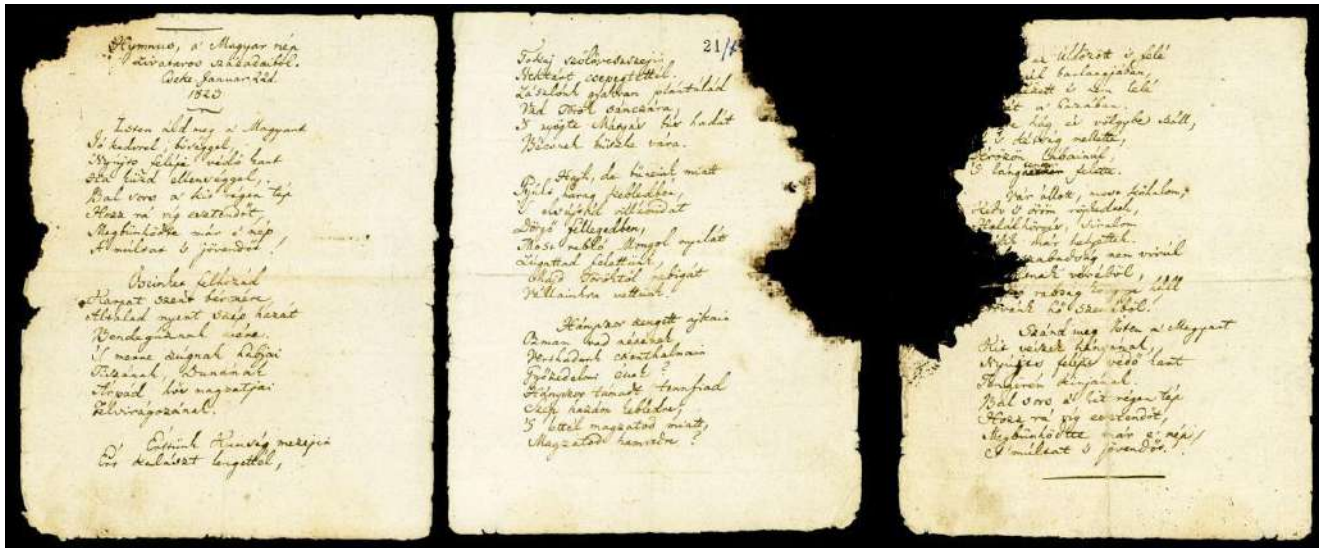 Hymnus, a' Magyar nép
Zivataros századaiból.
Cseke Januar 22d.
1823
Isten áld meg a' Magyart
Jó kedvvel, bőséggel,
Nyújts feléje védő kart
Ha küzd ellenséggel,
Bal sors a' kit régen tép
Hozz rá víg esztendőt,
Megbűnhödte már e' nép
A' múltat 's jövendőt!
Őseinket felhozád
Kárpát szent bérczére,
Általad nyert szép hazát
Bendegúznak vére.
'S merre zúgnak habjai
Tiszának, Dunának
Árpád hős magzatjai
Felvirágozának.
Értünk Kunság mezejin
Ért kalászt lengettél,
21/
Tokaj szőlővesszejin
Nektárt csepegtettél.
Zászlónk gyakran plántálád
Vad Török sánczára,
'S nyögte Mátyás bús hadát
Bécsnek büszke vára.
Hajh, de bűneink miatt
Gyúlt harag kebledben,
'S elsújtád villámidat
Dörgő fellegedben,
Most rabló Mongol nyilát
Zúgattad felettünk,
Majd Töröktől rabigát
Vállainkra vettünk.
Hányszor zengett ajkain
Ozman vad népének
Vert hadunk csonthalmain
Győzedelmi ének?
Hányszor támadt tenn fiad
Szép hazám kebledre,
'S lettél magzatod miatt,
Magzatod hamvedre?
üldözött 's felé
barlangjában,
nézett 's nem lelé
a' hazában.
hág és völgybe száll,
's kétség mellette,
Vérözön lábainál,
'S lángtenger felette.
Vár állott, most kőhalom,
Kedv 's öröm röpkedtek,
Halálhörgés, siralom
már helyettek.
szabadság nem virúl
véréből,
rabság könnye hull
hő szeméből.
Szánd meg Isten a' Magyart
Kit vészek hányának,
Nyújts feléje védő kart
Tengerén kínjának.
Bal sors a' kit régen tép
Hozz rá víg esztendőt,
Megbűnhödte már e' nép
A' múltat 's jövendőt!